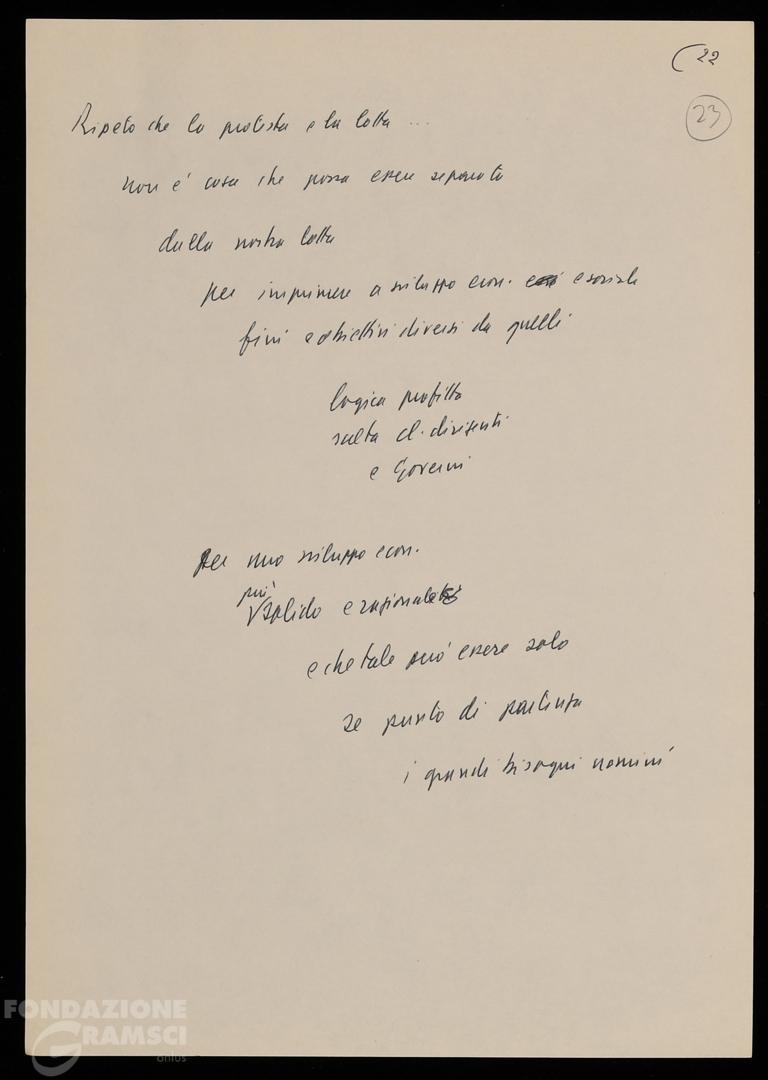 22
23
Ripeto che la protesta e la lotta ...
non è cosa che possa essere separata
dalla nostra lotta
per imprimere a sviluppo econ. e sociale
fini e obiettivi diversi da quelli
logica profitto
scelta cl. dirigenti
e Governi
per uno sviluppo econ.
più
solido e razionale
e che tale può essere solo
se punto di partenza
i grandi bisogni uomini
FONDAZIONE
GRAMSCI
onlus